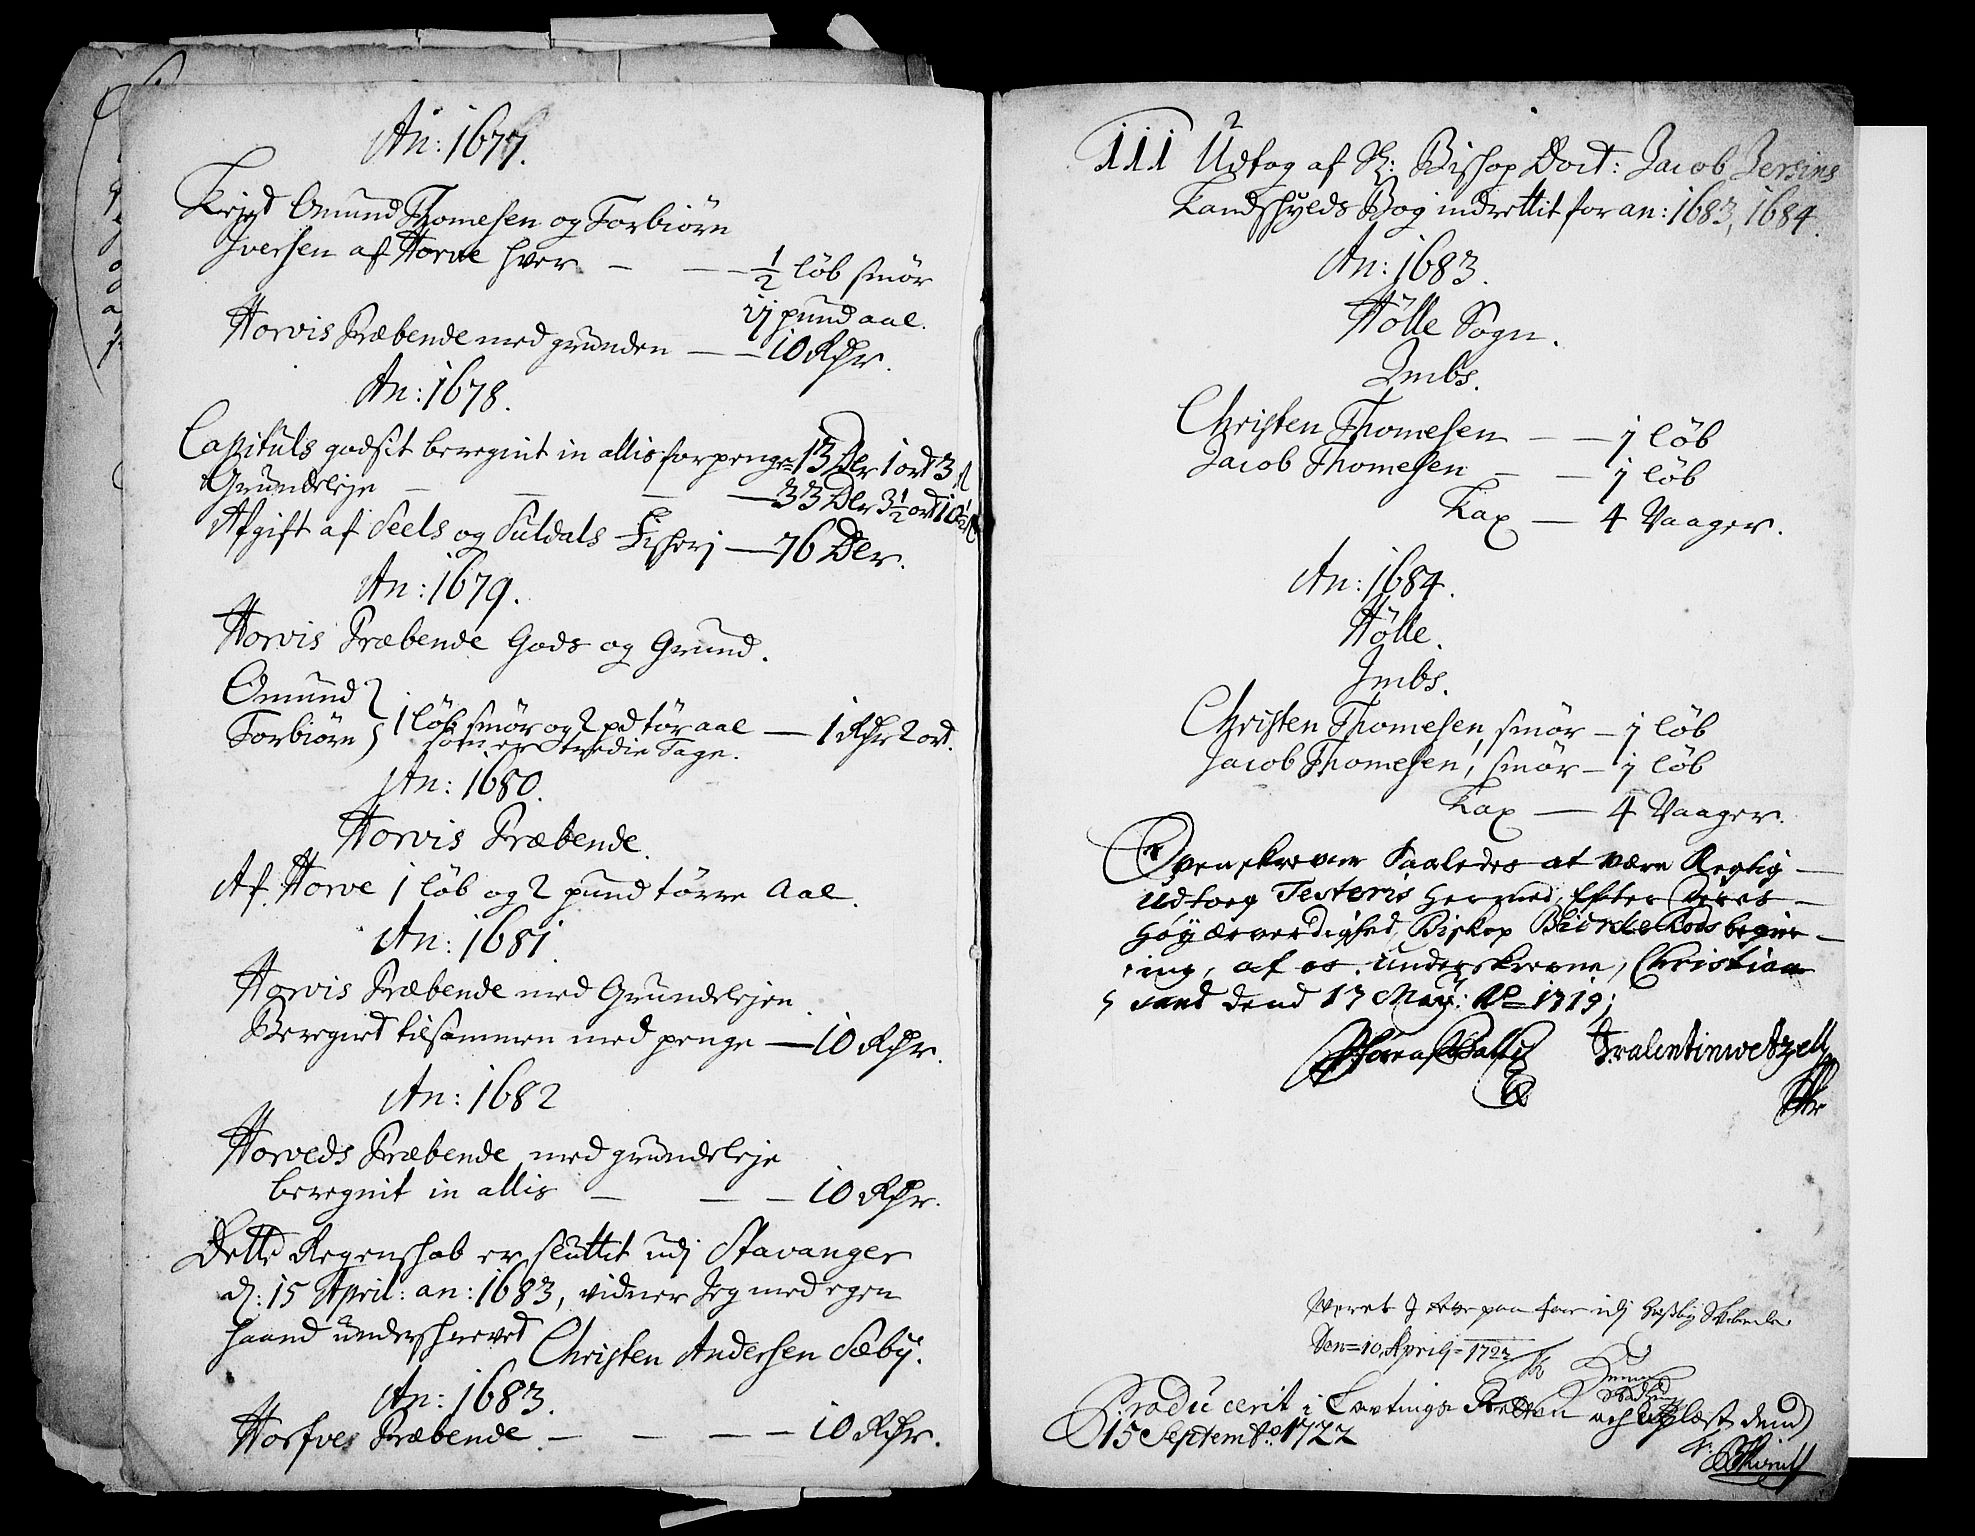 An: 1677.
Omund Thomesen og Torbiörn
Iversen af Horve hver — — — ½ löb smör
ij pund aal.
Horvis Præbende med grunden — — 10 Rdr.
An: 1678.
Capituls godsit beregnit in allis for penge 13 Dlr 1 ort 3 ß
Grundeleje — — — — 33 Dlr 3½ ort 10½ ß
Afgift af Seels og Suldals Fisherj — 76 Dlr.
An: 1679.
Horvis Præbende Gods og Grund.
Omund
Torbiörn } 1 löb smör og 2 pd tör aal — 1 Rdr 2 ort.
som er tredie Tage.
An: 1680.
Horvis Præbende.
Af Horve 1 löb og 2 pund törre Aal.
An: 1681.
Horvis Præbende med Grundelejen
Beregnet tilsammen med penge — 10 Rdr.
An: 1682
Horveds Præbende med grundeleje
beregnit in allis — — — 10 Rdr.
Dette Regenshab er sluttet udj Stavanger
d: 15 April: an: 1683, vidner Jeg med egen
haand undershrevet Christen Andersen Sæbÿ.
An: 1683.
Horfves Præbende — — — — 10 Rdr.
III Udtog af Sl: Bishop Doct: Jacob Jersins
Landshylds Bog indrettit for an: 1683, 1684.
An: 1683.
Hölle Sogn.
Imbs.
Christen Thomesen — — j löb
Jacob Thomesen — — j löb
Lax — 4 Vaager.
An: 1684.
Hölle.
Imbs.
Christen Thomesen, smör — j löb
Jacob Thomesen, smör — j löb
Lax — 4 Vaager.
Ovenskrevne Saaledes at være Regtig —
Udtoeg Testeris Hermed, Efter Deres —
Höyærverdighed, Biskop begier —
ing, af os underskrevne, Christian
sand dend 17 Maÿ: Ao 1719;
Valentin Wetzell
udj
Den 10 April 1722
Producerit i Lavtings Retten och oplæst dend
15 Septembr: 1722